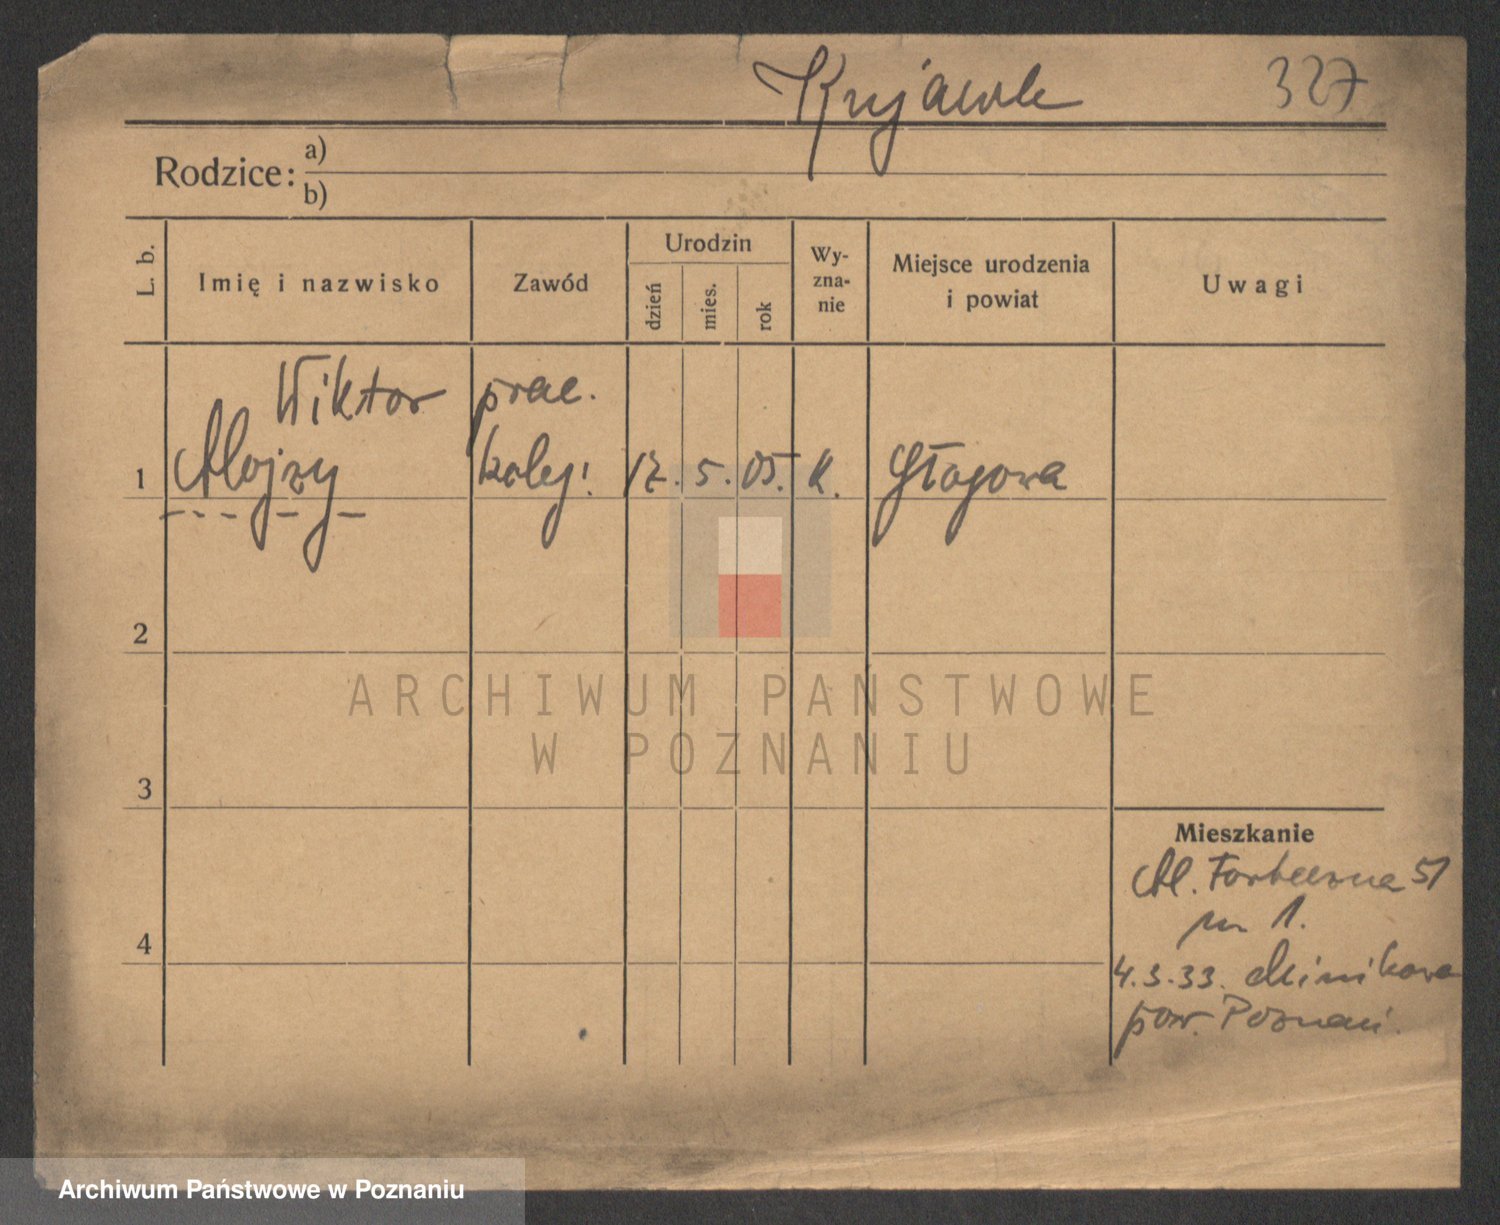 Kujawk 327
Rodzice: a)
b)
L. b. Imię i nazwisko Zawód Urodzin dzień mies. rok Wy-zna-nie Miejsce urodzenia i powiat Uwagi
Wiktor prac.
1 Alojzy kolej. 17. 5. 05. k. Głogowa
2
ARCHIWUM PAŃSTWOWE
W POZNANIU
3
Mieszkanie
Forteczna 51
m 1.
4
4.3.33. Minikowo
pow. Poznań.
Archiwum Państwowe w Poznaniu